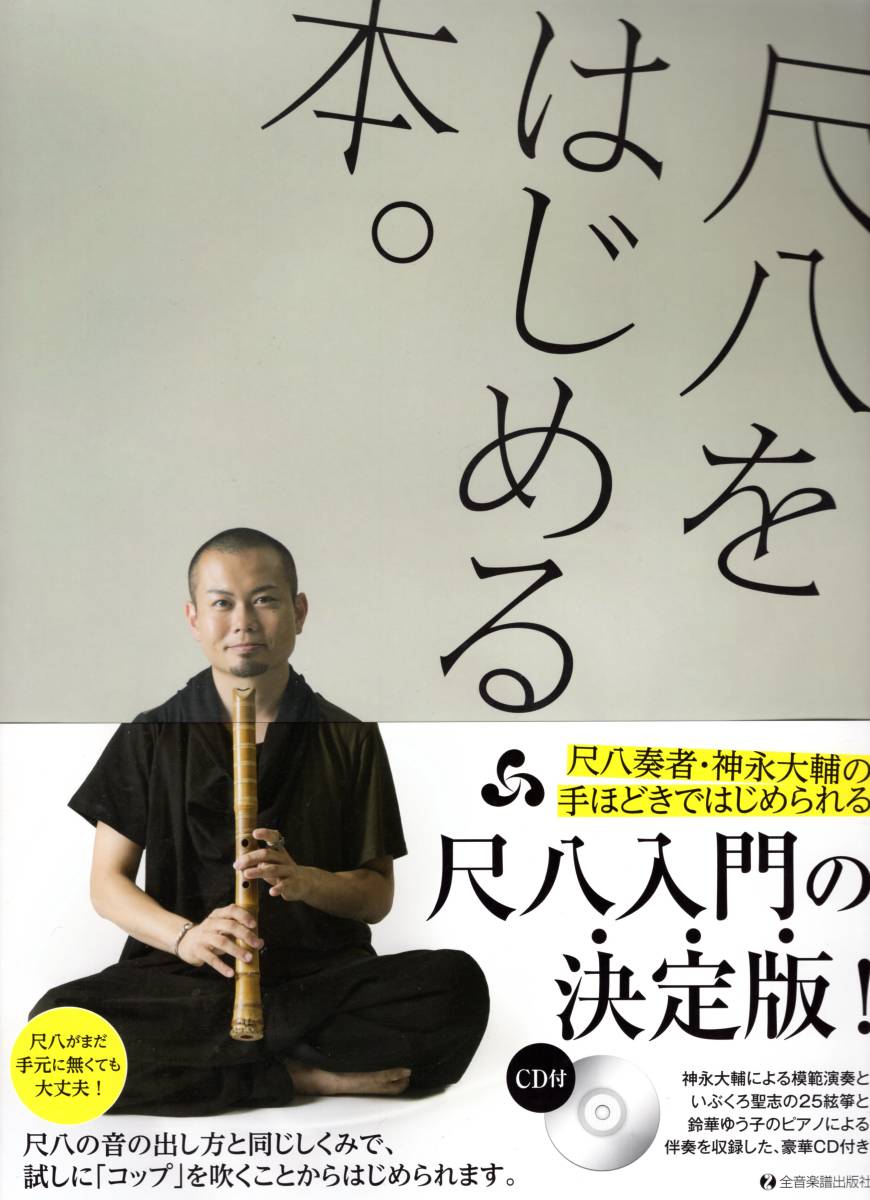 尺八を
はじめる
本。
尺八奏者・神永大輔の
手ほどきではじめられる
尺八入門の
決定版!
尺八がまだ
手元に無くても
大丈夫!
CD付
神永大輔による模範演奏と
いぶくろ聖志の25絃箏と
鈴華ゆう子のピアノによる
伴奏を収録した、豪華CD付き
尺八の音の出し方と同じしくみで、
試しに「コップ」を吹くことからはじめられます。
全音楽譜出版社